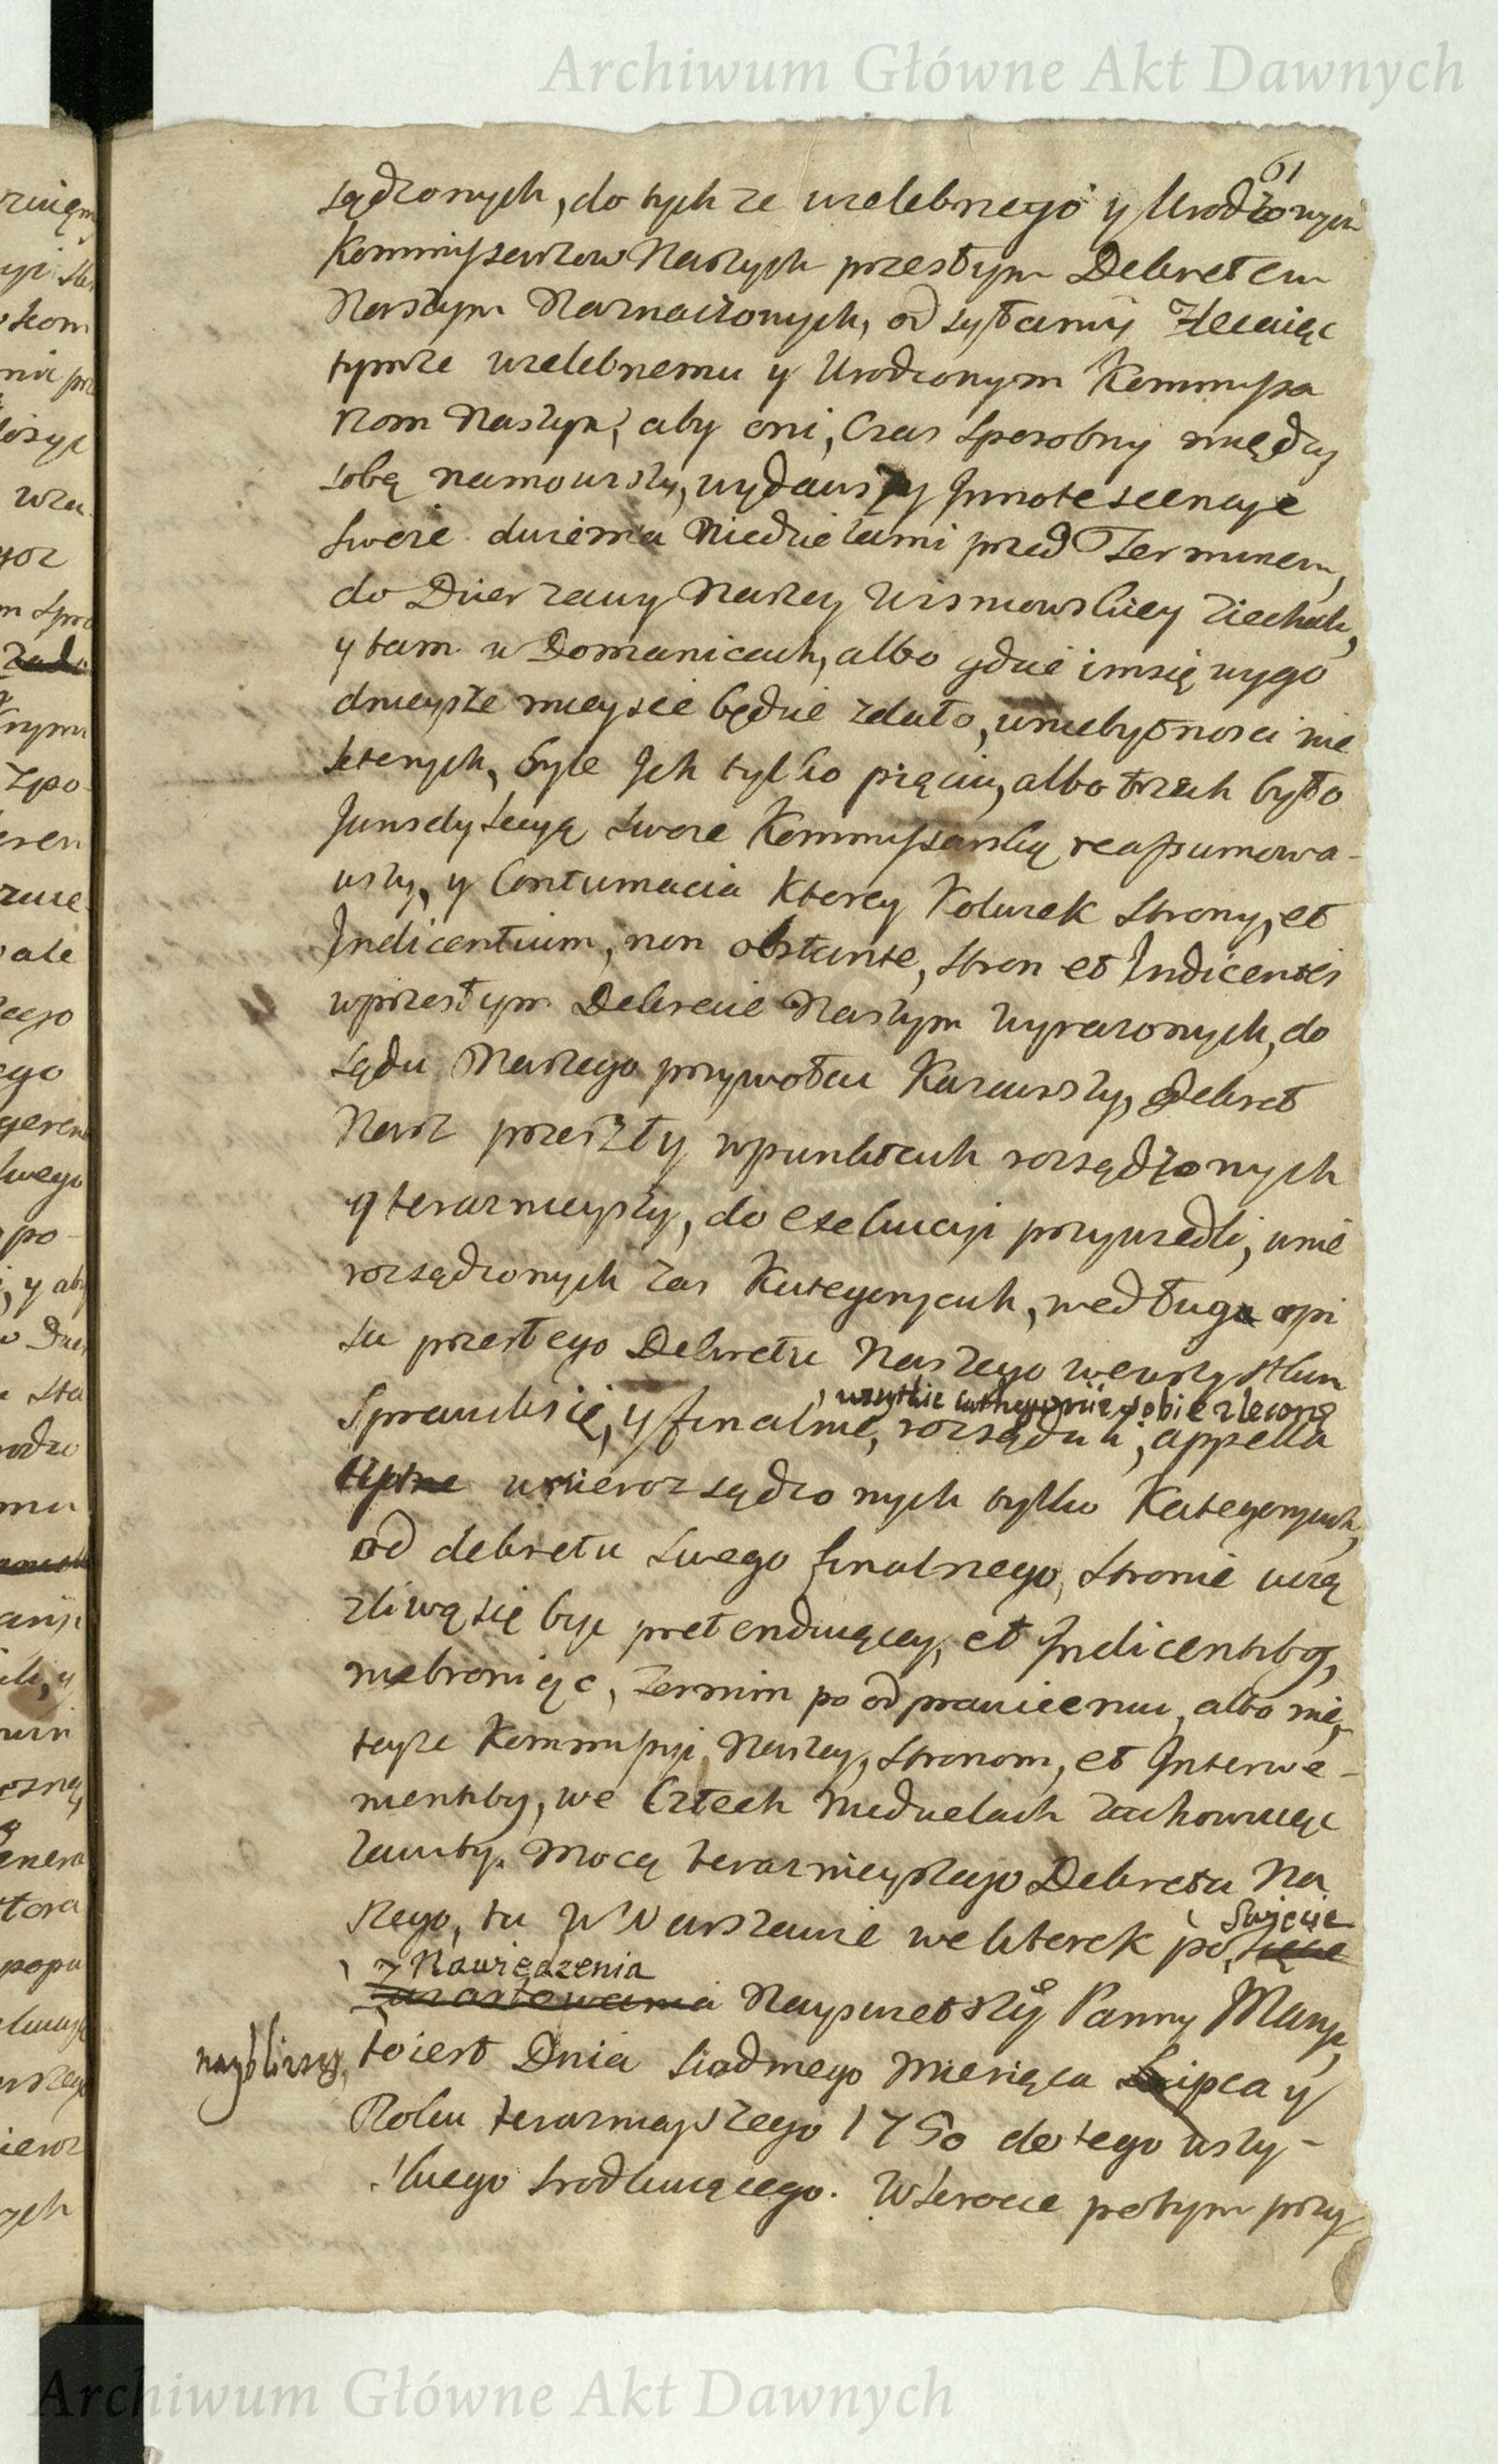 Archiwum Główne Akt Dawnych
61
sądzonych, do tych ze wielebnego y Urodzonych
Kommissarzow Naszych przeszłym Dekretem
Naszym Naznaczonych, odsyłamy Zlecaiąc
tymze wielebnemu y Urodzonym Kommissa
rzom Naszym, aby oni, Czas sposobny między
sobą namowiwszy, wydawszy Innotescencye
swoie dwiema Niedzielami przed Terminem,
do Dzierzawy Naszey Wisniowskiey ziechali,
y tam w Domanicach, albo gdzie im się wygo
dnieysze mieysce będzie zdało, w niebytnosci nie
ktorych, byle Ich tylko pięciu, albo trzech było
Jurisdykcyą swoie Kommissarską reassumowa-
wszy, y Contumacia Ktorey Kolwiek strony, et
Indicentium, non obstante, stron et Indicentes
w przeszłym Dekrecie Naszym wyrazonych, do
sądu Naszego przywołać Kazawszy, Dekret
Nasz przeszły w punktach rozsądzonych
y teraznieyszy, do exekucyi przywiedli, w nie
rozsądzonych zas Kategoryach, według opi
su przeszłego Dekretu Naszego we wszystkim
, wszytkie kathegorie sobie zlecone
Sprawili się, y finalnie, rozsądzili, appella
w nierozsądzonych tylko Kategoryach,
od dekretu swego finalnego, stronie urą
zliwą się być pretenduiącey, et Indicentibus,
niebroniąc, Termin po odprawieeniu, albo nie,
teyze Kommissyi Naszey, stronom, et Interve-
nientibus, we Cztech niedzielach zachowuiąc
zawity. Mocą terazmieyszego Dekretu Na
szego, tu w Warszawie we Wtorek po Swięcie
Nawiedzenia
Nayswietszy Panny Maryi,
nayblizszy,
to iest Dnia siodmego Miesiąca Lipca y
Roku terazniejszego 1750 do tego wszy-
stkiego srodkuiącego. W sprawie potym przy
Archiwum Główne Akt Dawnych